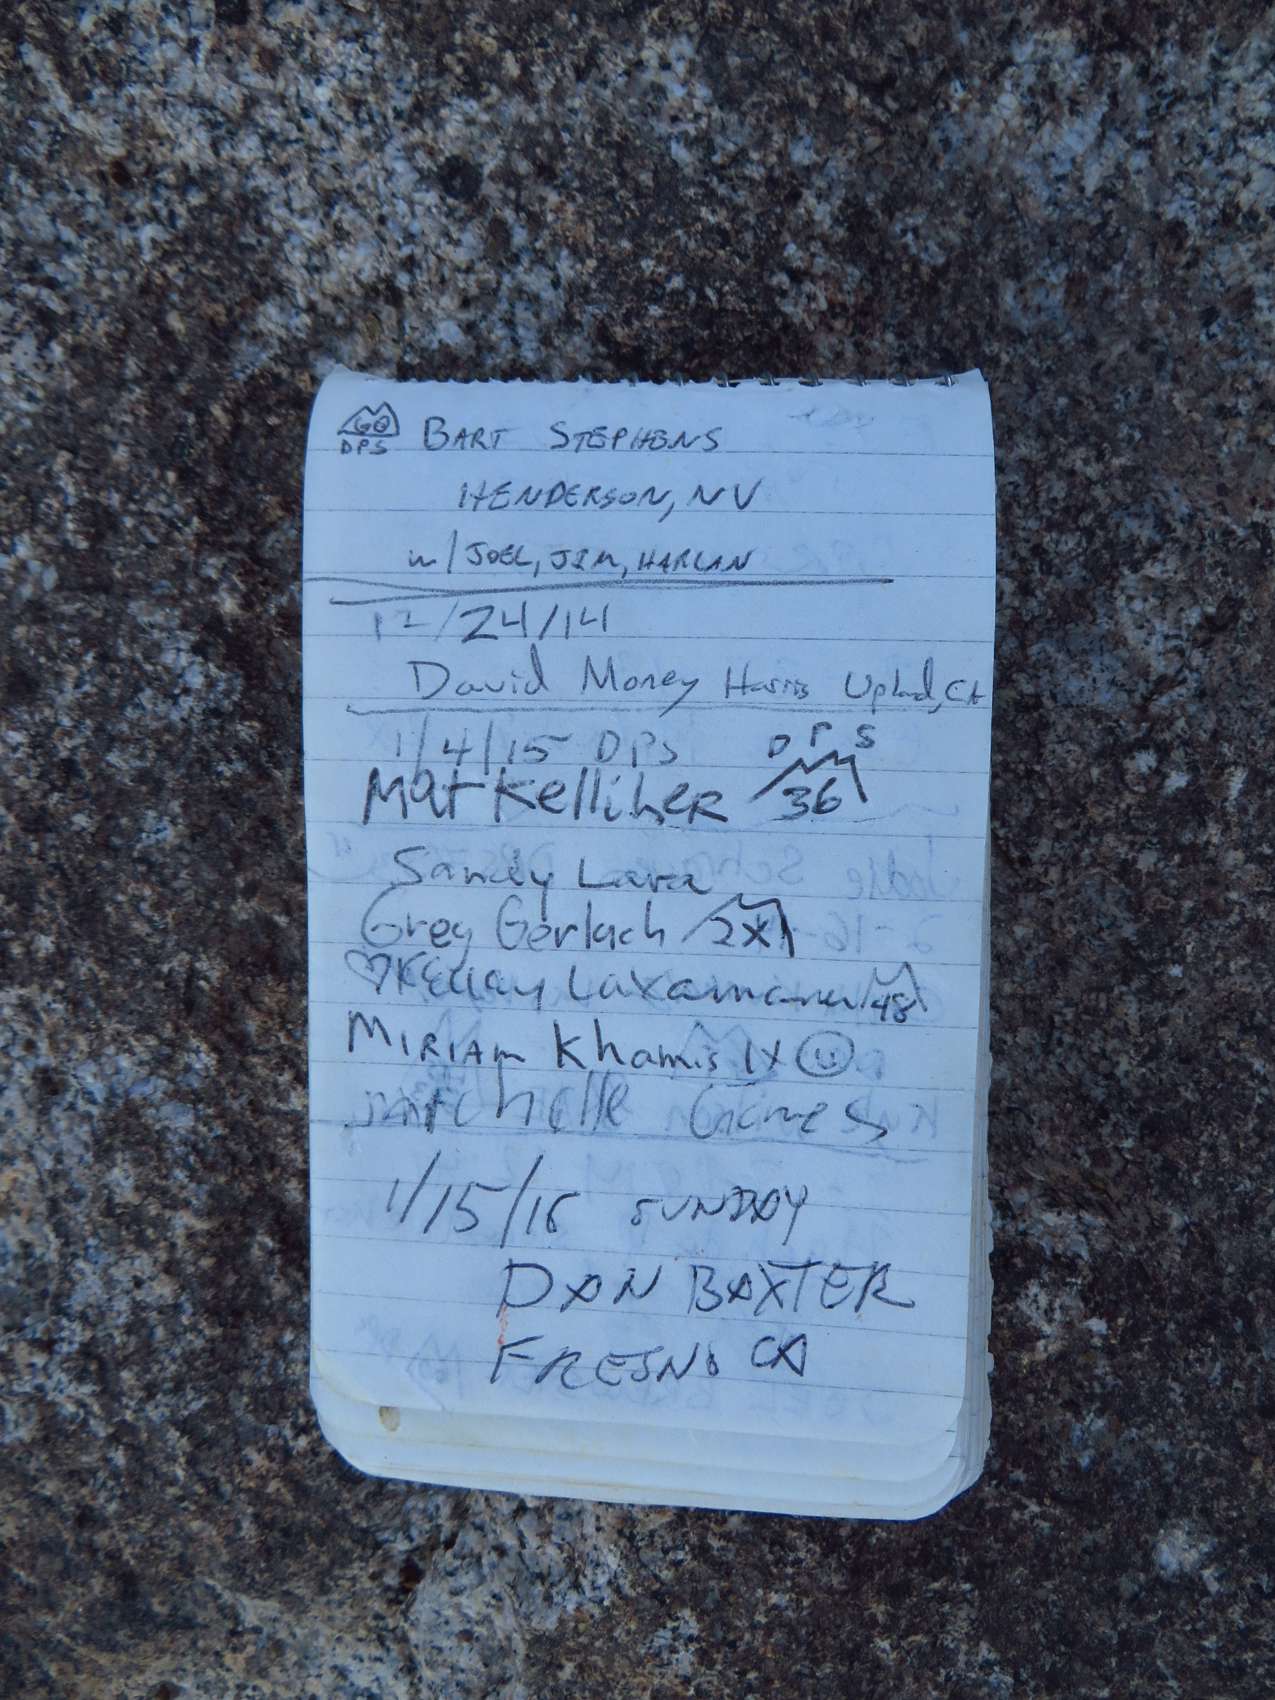 60 DPS BART STEPHENS
HENDERSON, NV
w/ JOEL, JIM, HARLAN
12/24/14
David Money Harris Upland, CA
1/4/15 DPS
Mat Kelliher DPS 36
Sandy Lara
Greg Gerlach 2X
♡ Kellay Laxamana 48
MIRIAM Khamis 1X ☺
Mitchelle Games
1/15/16 SUNDAY
DAN BAXTER
FRESNO CA